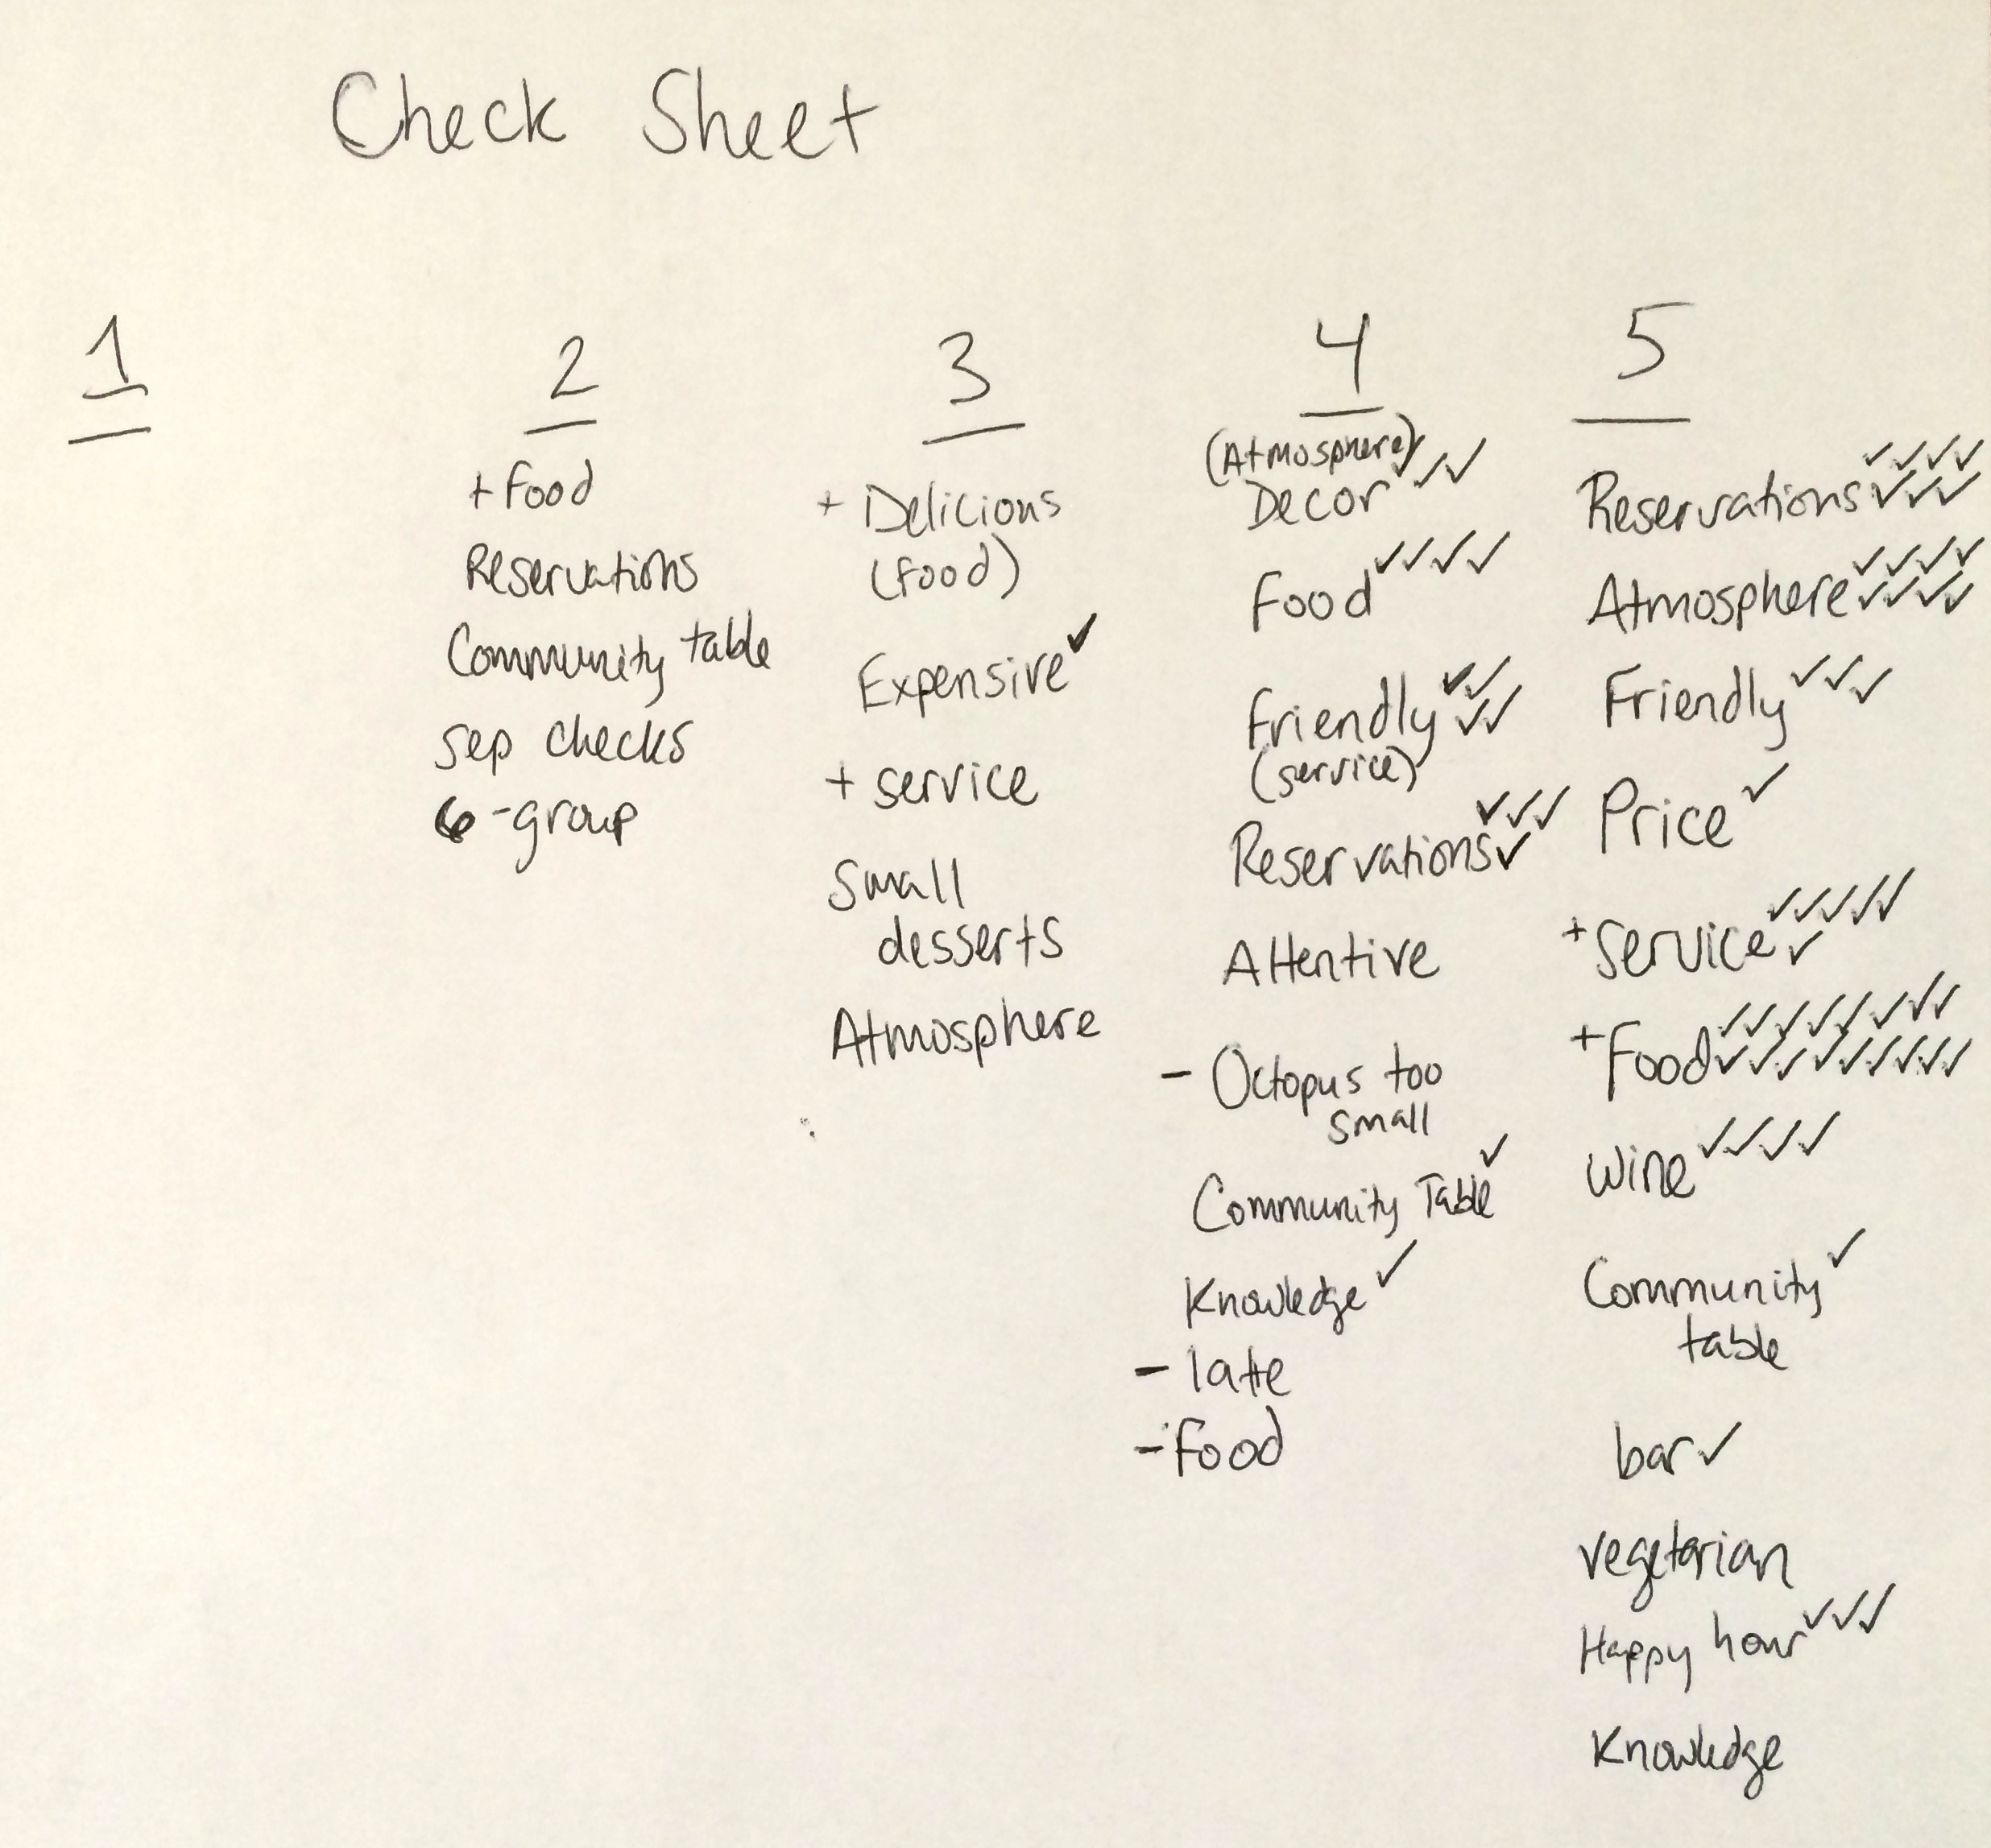 Check Sheet
1
2
+ food
Reservations
Community table
sep checks
6-group
3
+ Delicious
(food)
Expensive ✓
+ service
Small
desserts
Atmosphere
4
(Atmosphere)
Decor ✓✓✓
Food ✓✓✓✓
Friendly ✓✓✓✓
(service)
Reservations ✓✓✓✓
Attentive
- Octopus too
small
Community Table ✓
Knowledge ✓
- late
- food
5
Reservations ✓✓✓✓✓✓✓
Atmosphere ✓✓✓✓✓✓✓✓
Friendly ✓✓✓
Price ✓
+ Service ✓✓✓✓✓✓
+ Food ✓✓✓✓✓✓✓✓✓✓✓✓✓✓✓✓
Wine ✓✓✓✓
Community ✓
table
bar ✓
vegetarian
Happy hour ✓✓✓
Knowledge